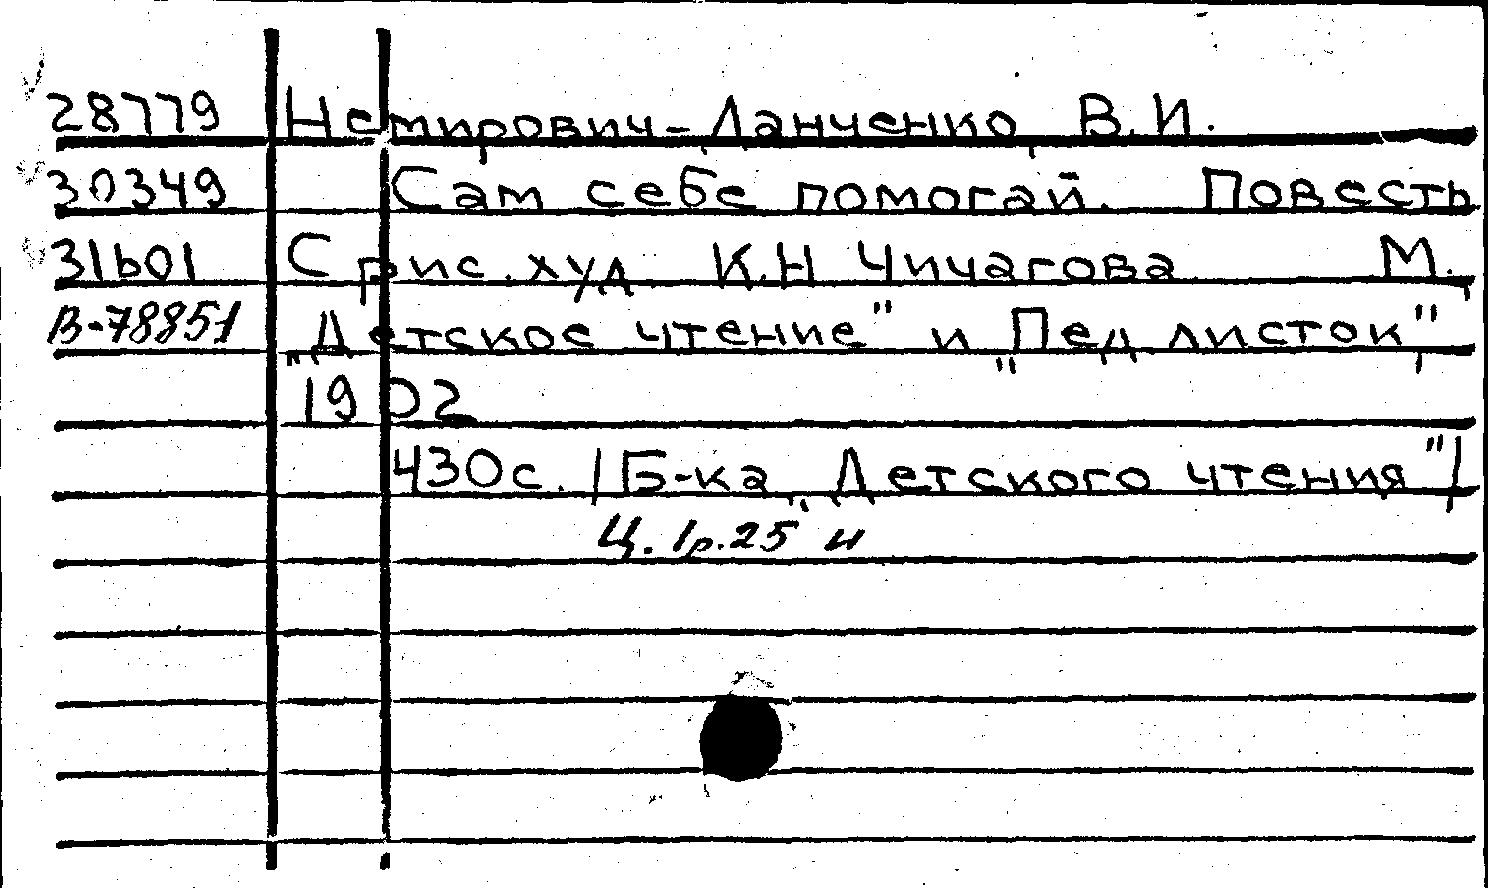 28779 Немирович-Данченко, В.И.
30349 Сам себе помогай. Повесть
31601 С рис. худ К.Н Чичагова М.,
В-78851 „Детское чтение" и „Пед листок",
1902
430с. /Б-ка „Детского чтения"/
Ц. 1р.25 и